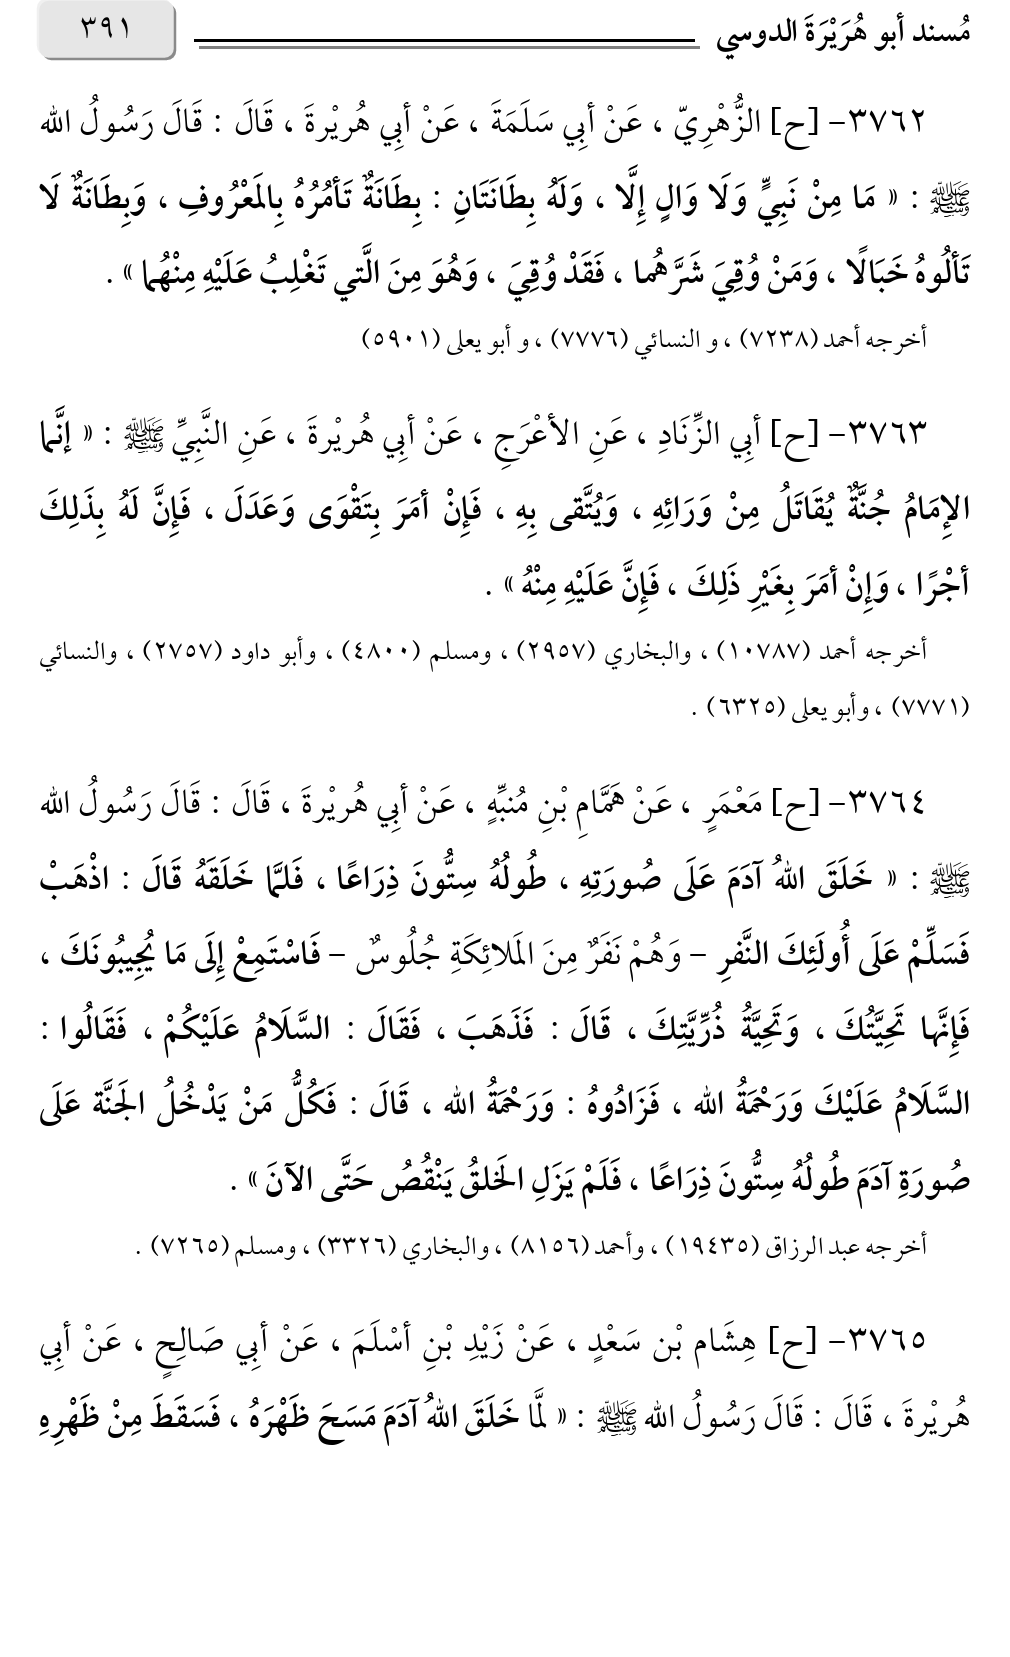 مُسند أبو هُرَيْرَةَ الدوسي ٣٩١
٣٧٦٢- [ح] الزُّهْرِيّ ، عَنْ أبِي سَلَمَةَ ، عَنْ أبِي هُريْرةَ ، قَالَ : قَالَ رَسُولُ الله
ﷺ : « مَا مِنْ نَبِيٍّ وَلَا وَالٍ إِلَّا ، وَلَهُ بِطَانَتَانِ : بِطَانَةٌ تَأمُرُهُ بِالمَعْرُوفِ ، وَبِطَانَةٌ لَا
تَألُوهُ خَبَالًا ، وَمَنْ وُقِيَ شَرَّهُما ، فَقَدْ وُقِيَ ، وَهُوَ مِنَ الَّتي تَغْلِبُ عَلَيْهِ مِنْهُما » .
أخرجه أحمد (٧٢٣٨) ، و النسائي (٧٧٧٦) ، و أبو يعلى (٥٩٠١)
٣٧٦٣- [ح] أبِي الزِّنَادِ ، عَنِ الأعْرَجِ ، عَنْ أبِي هُريْرةَ ، عَنِ النَّبِيِّ ﷺ : « إنَّما
الإِمَامُ جُنَّةٌ يُقَاتَلُ مِنْ وَرَائِهِ ، وَيُتَّقى بِهِ ، فَإِنْ أمَرَ بِتَقْوَى وَعَدَلَ ، فَإِنَّ لَهُ بِذَلِكَ
أجْرًا ، وَإِنْ أمَرَ بِغَيْرِ ذَلِكَ ، فَإِنَّ عَلَيْهِ مِنْهُ » .
أخرجه أحمد (١٠٧٨٧) ، والبخاري (٢٩٥٧) ، ومسلم (٤٨٠٠) ، وأبو داود (٢٧٥٧) ، والنسائي
(٧٧٧١) ، وأبو يعلى (٦٣٢٥) .
٣٧٦٤- [ح] مَعْمَرٍ ، عَنْ هَمَّامِ بْنِ مُنبِّهٍ ، عَنْ أبِي هُريْرةَ ، قَالَ : قَالَ رَسُولُ الله
ﷺ : « خَلَقَ اللهُ آدَمَ عَلَى صُورَتِهِ ، طُولُهُ سِتُّونَ ذِرَاعًا ، فَلمَّا خَلَقَهُ قَالَ : اذْهَبْ
فَسَلِّمْ عَلَى أُولَئِكَ النَّفرِ – وَهُمْ نَفَرٌ مِنَ المَلائِكَةِ جُلُوسٌ – فَاسْتَمِعْ إِلَى مَا يُجِيبُونَكَ ،
فَإِنَّها تَحِيَّتُكَ ، وَتَحِيَّةُ ذُرِّيَّتِكَ ، قَالَ : فَذَهَبَ ، فَقَالَ : السَّلَامُ عَلَيْكُمْ ، فَقَالُوا :
السَّلَامُ عَلَيْكَ وَرَحْمَةُ الله ، فَزَادُوهُ : وَرَحْمَةُ الله ، قَالَ : فَكُلُّ مَنْ يَدْخُلُ الجَنَّة عَلَى
صُورَةِ آدَمَ طُولُهُ سِتُّونَ ذِرَاعًا ، فَلَمْ يَزَلِ الخَلقُ يَنْقُصُ حَتَّى الآنَ » .
أخرجه عبد الرزاق (١٩٤٣٥) ، وأحمد (٨١٥٦) ، والبخاري (٣٣٢٦) ، ومسلم (٧٢٦٥) .
٣٧٦٥- [ح] هِشَام بْن سَعْدٍ ، عَنْ زَيْدِ بْنِ أسْلَمَ ، عَنْ أبِي صَالِحٍ ، عَنْ أبِي
هُريْرةَ ، قَالَ : قَالَ رَسُولُ الله ﷺ : « لمَّا خَلَقَ اللهُ آدَمَ مَسَحَ ظَهْرَهُ ، فَسَقَطَ مِنْ ظَهْرِهِ